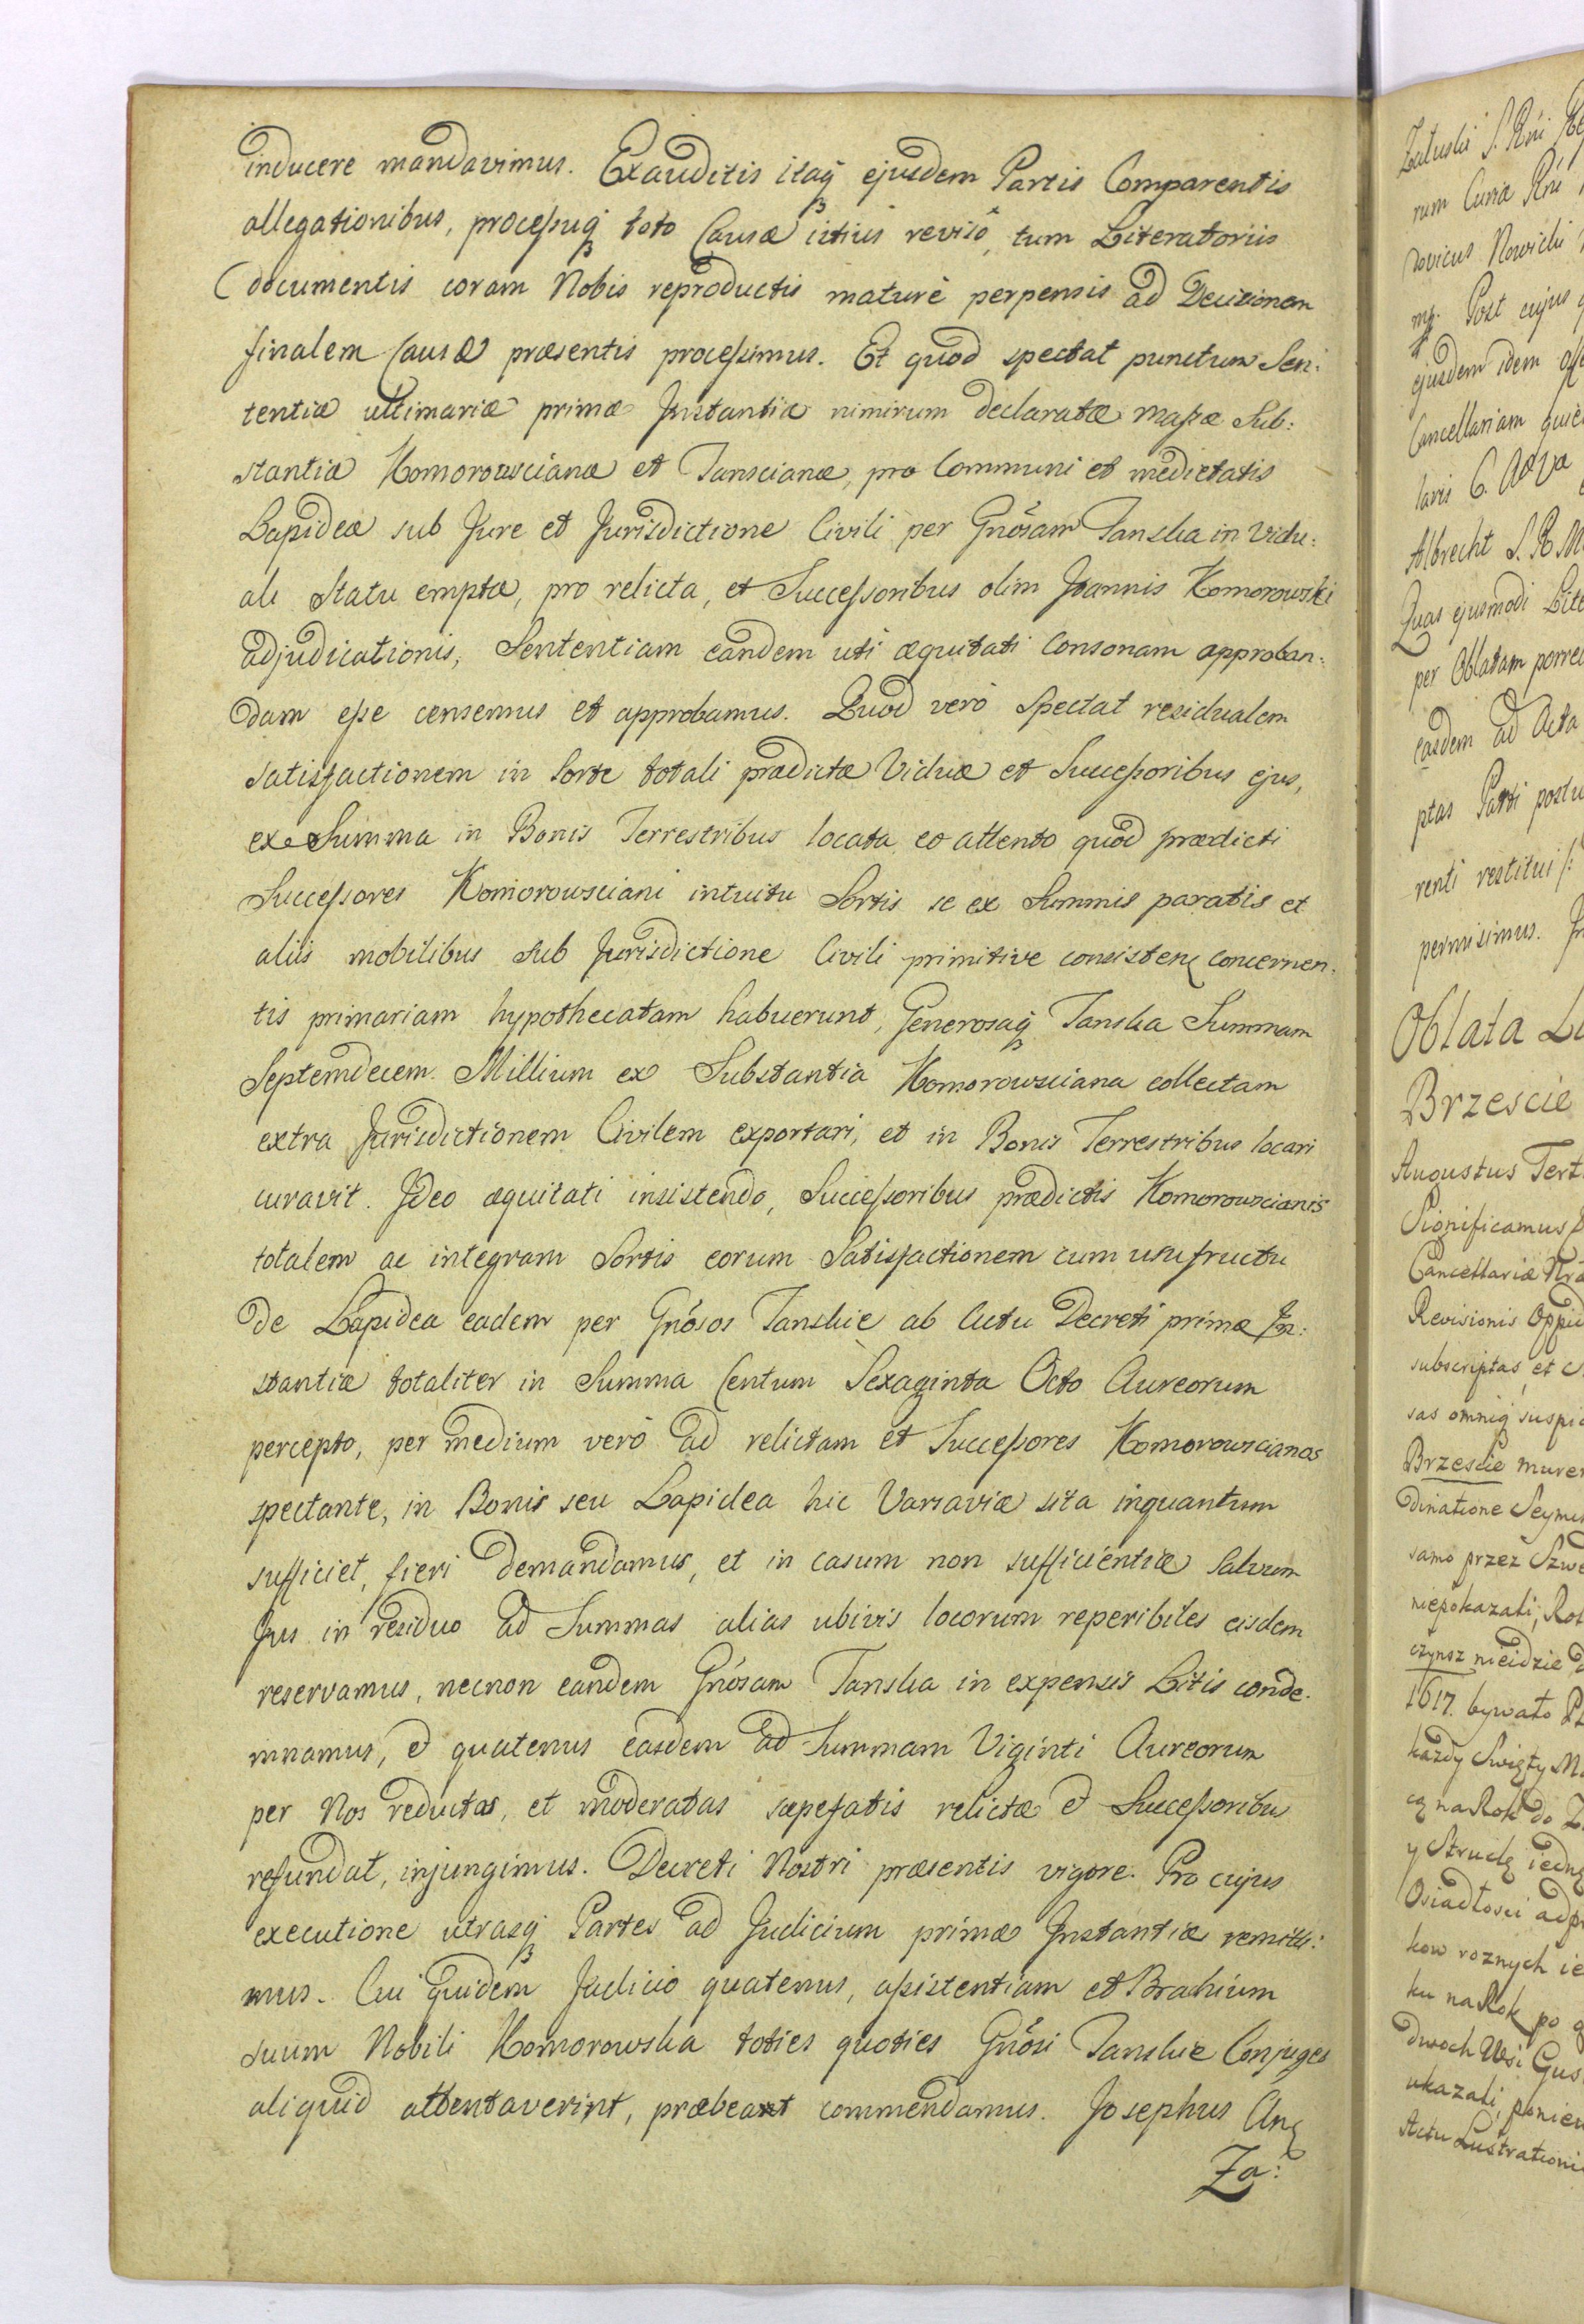 inducere mandavimus. Exauditis itaq̃ ejusdem Partis Comparentis
allegationibus, processuq̃ toto Causæ istius revisô, tum Literatoriis
documentis coram Nobis reproductis maturè perpensis ad Decisionem
finalem Causæ præsentis processimus. Et quod spectat punctum Sen:
tentiæ ultimariæ primæ Instantiæ nimirum declaratæ massæ Sub:
stantiæ Komorowscianæ et Tanscianæ, pro Communi et medietatis
Lapideæ sub Jure et Jurisdictione Civili per Gnôsam Tanska in Vidu:
ali Statu emptæ, pro relicta, et Successoribus olim Joannis Komorowski
adjudicationis, Sententiam eandem uti æquitati Consonam approban:
dam esse censemus et approbamus. Quod verò Spectat residualem
satisfactionem in Sorte totali prædictæ Viduæ et Successoribus ejus,
ex Summa in Bonis Terrestribus locata eo attento quod prædicti
Successores Komorowsciani intuitu Sortis se ex Summis paratis et
aliis mobilibus sub Jurisdictione Civili primitive consisten concernen:
tis primariam hypothecatam habuerunt, Generosaq̃ Tanska Summam
Septemdecem Millium ex Substantia Komorowsciana collectam
extra Jurisdictionem Civilem exportari, et in Bonis Terrestribus locari
curavit. Ideo æquitati insistendo, Successoribus prædictis Komorowscianis
totalem ac integram Sortis eorum Satisfactionem cum usufructu
de Lapidea eadem per Gnôsos Tanskie ab Actu Decreti primæ In:
stantiæ totaliter in Summa Centum Sexaginta Octo Aureorum
percepto, per medium verò ad relictam et Successores Komorowscianos
spectante, in Bonis seu Lapidea hic Varsaviæ sita inquantum
sufficiet, fieri demandamus, et in casum non sufficientiæ Salvum
Jus in residuo ad Summas alias ubivis locorum reperibiles eisdem
reservamus, necnon eandem Gnôsam Tanska in expensis Litis conde:
mnamus, & quatenus easdem ad Summam Viginti Aureorum
per Nos reductas, et moderatas sæpefatis relictæ & Successoribus
refundat, injungimus. Decreti Nostri præsentis vigore. Pro cujus
executione utrasq̃ Partes ad Judicium primæ Instantiæ remitti:
mus. Cui quidem Judicio quatenus, assistentiam et Brachium
suum Nobili Komorowska toties quoties Gnôsi Tanskie Conjuges
aliquid attentaverint, præbeant commendamus. Josephus An
Za:
Zaluski S. Rni
rum Curiæ Rni
dovicus Nowicki
mp. Post cujus
ejusdem idem off
Cancellariam
laris C.
Albrecht S. R. M
Quas ejusmodi Lite
per Oblatam porrec
easdem ad Acta
ptas Parti postu
renti restitui
permisimus. In
Oblata Li
Brzescie
Augustus Tert
Significamus
Cancellariæ Nra
Revisionis Oppid
subscriptas, et
sas omniq̃ suspic
Brzescie
dinatione Seymu
samo przez Szwe
niepokazali, Rol
czynsz nieidzie
1617. bywało
kazdy Swięty
cą na Rok do
y Struclę iedną
Osiadłosci adp
kow roznych ie
ku na Rok po
dwoch Wsi Gus
ukazali, poniew
Actu Lustrationi